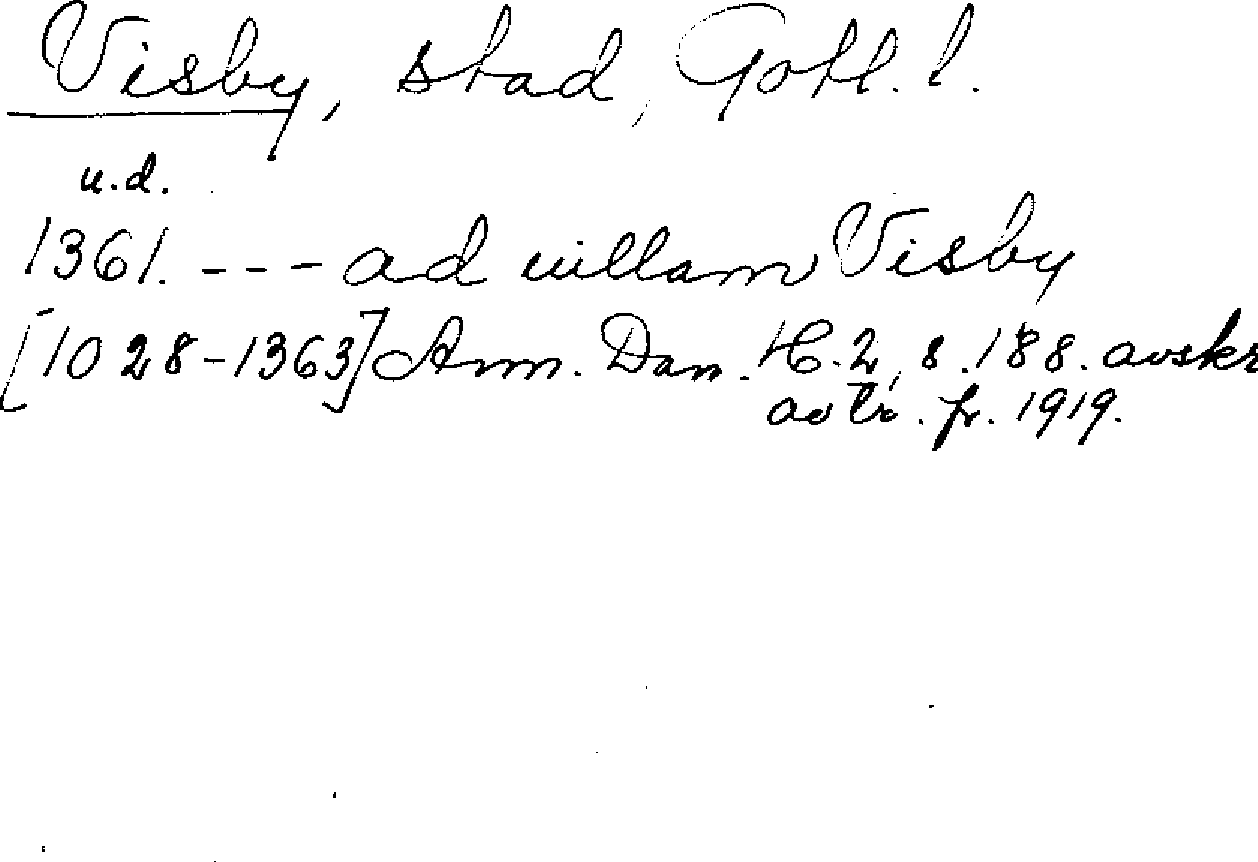 Visby, stad, Gotl. l.
u.d.
1361. --- ad uillam Visby
[1028-1363] Ann. Dan. H. 2, s. 188. avskr
av tr. fr. 1919.